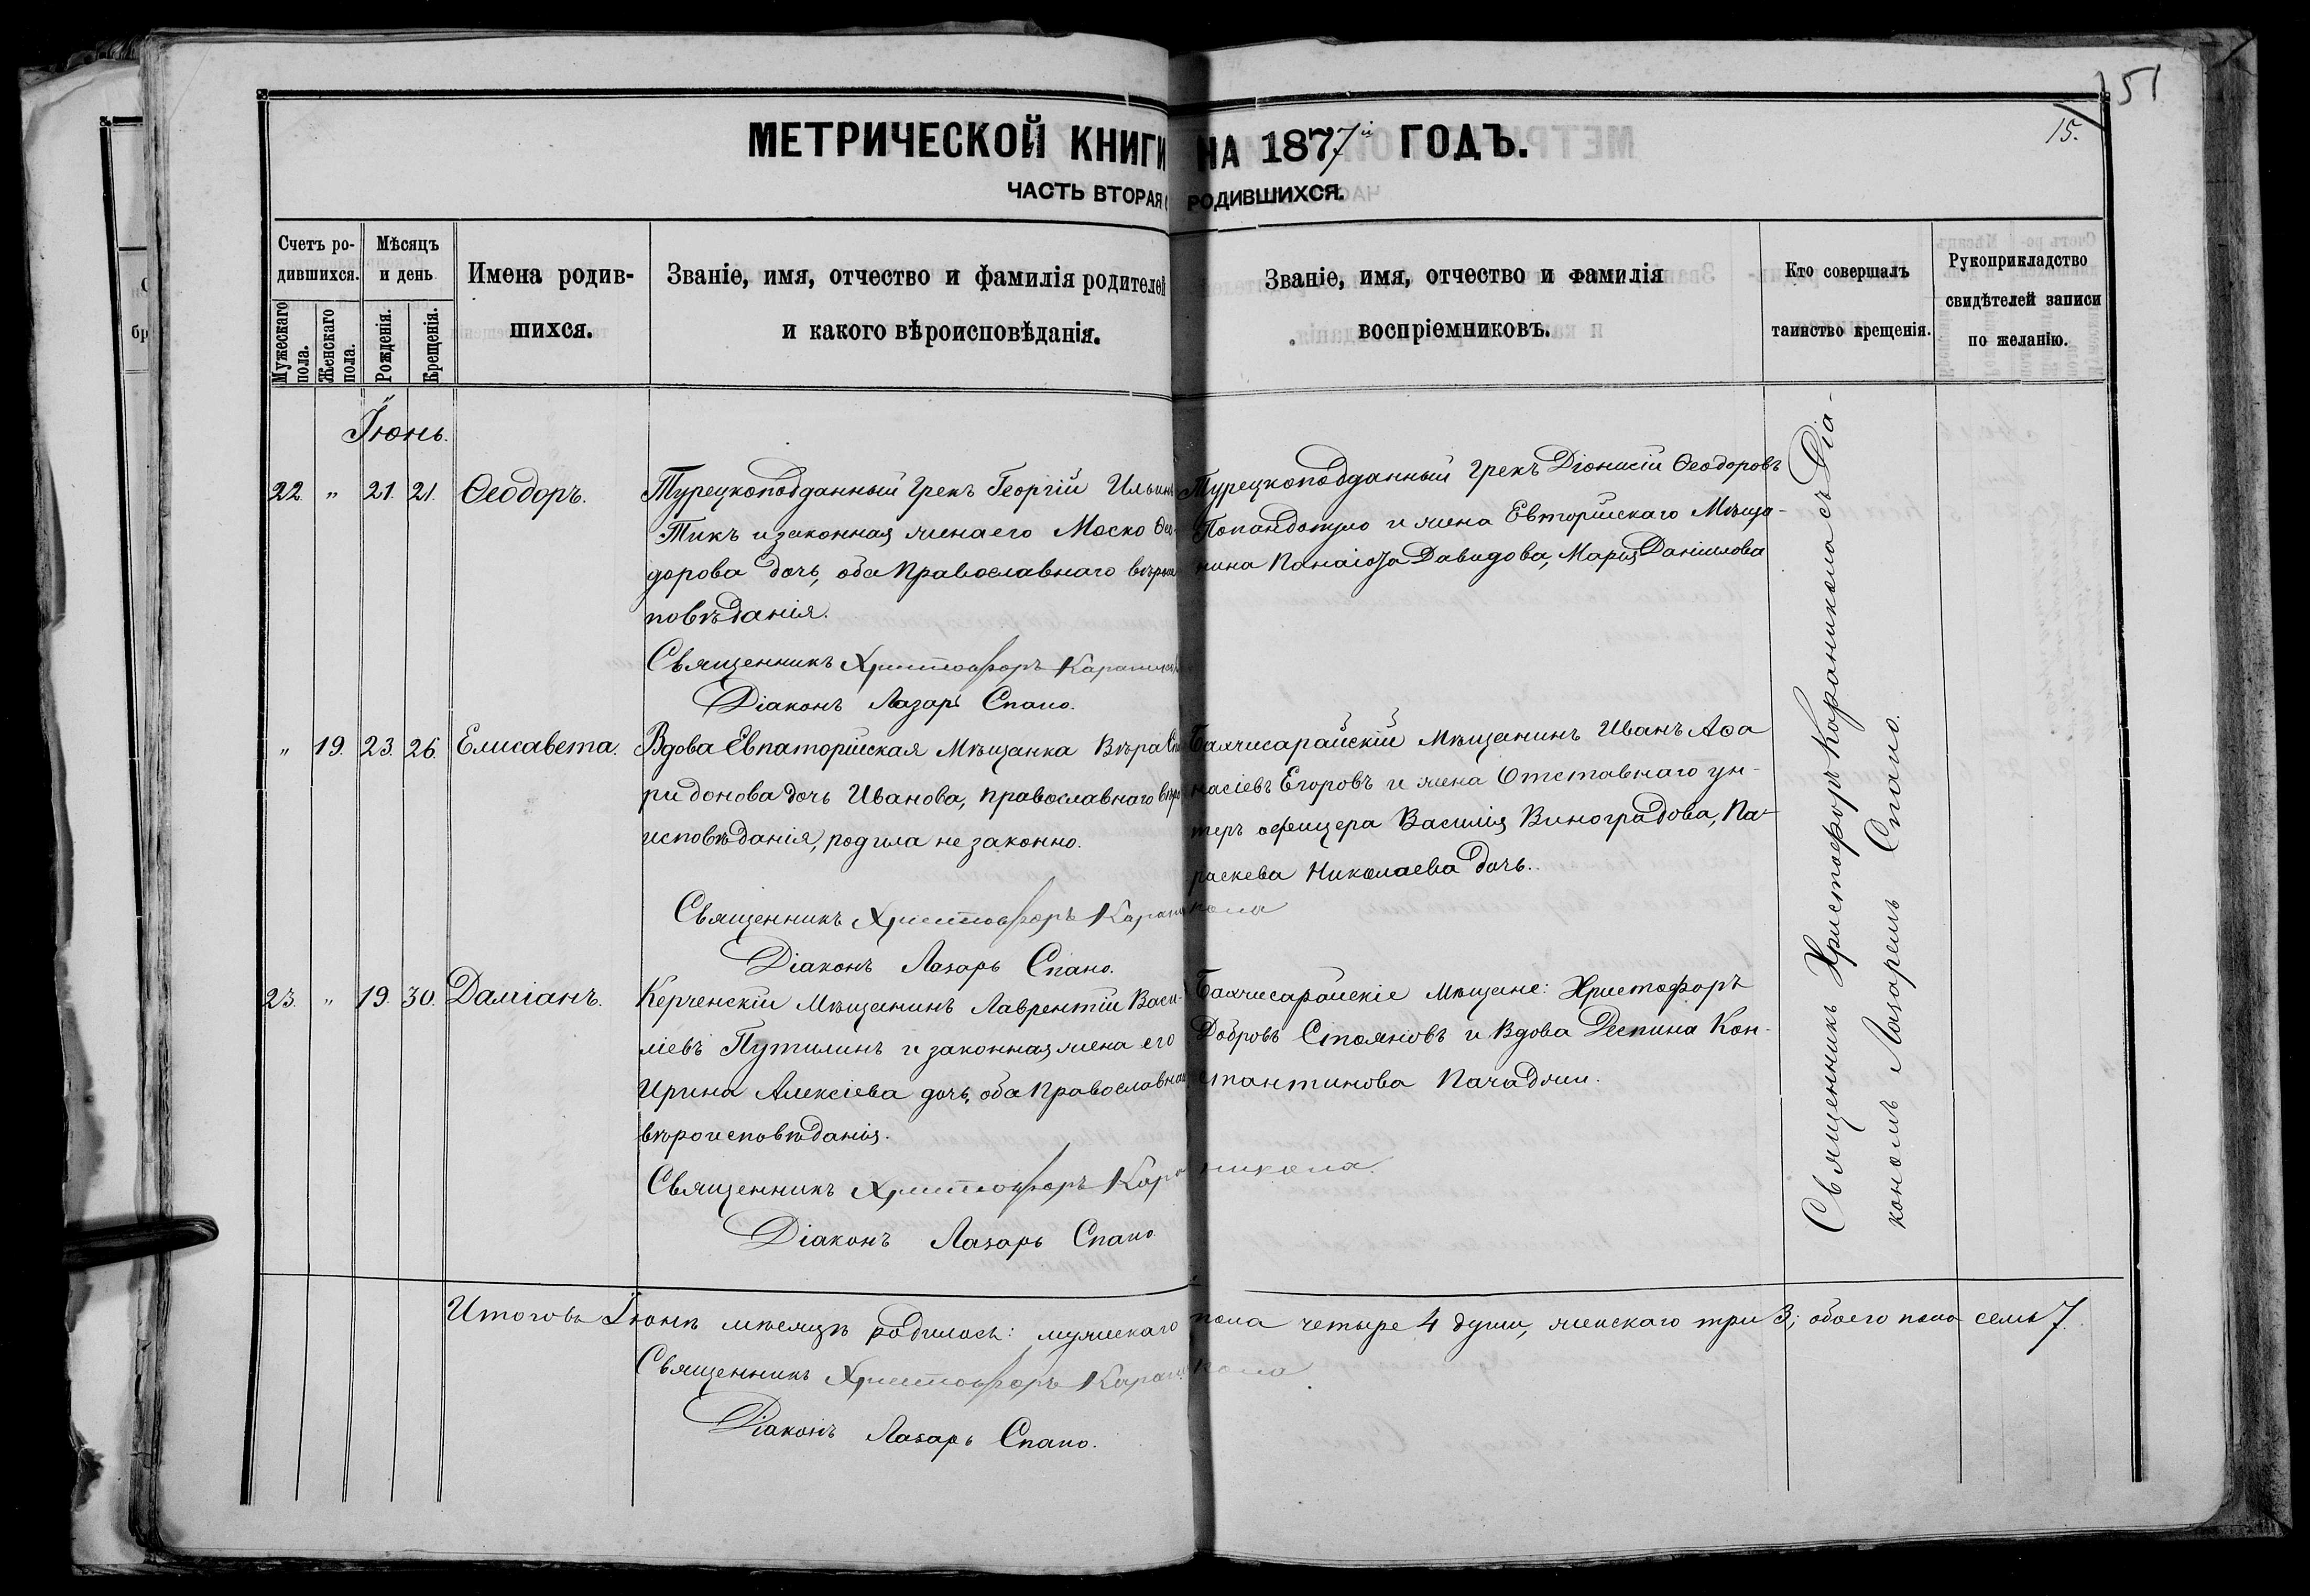 51
15.
МЕТРИЧЕСКОЙ КНИГИ НА 1877й ГОДЪ.
ЧАСТЬ ВТОРАЯ РОДИВШИХСЯ.
Счетъ ро-
дившихся.
Мужескаго пола.
Женскаго пола.
Мѣсяцъ
и день
Рожденія.
Крещенія.
Имена родив-
шихся.
Званіе, имя, отчество и фамилія родителей
и какого вѣроисповѣданія.
Званіе, имя, отчество и фамилія
воспріемниковъ.
Кто совершалъ
таинство крещенія.
Рукоприкладство
свидѣтелей записи
по желанію.
Іюнь.
22 " 21. 21. Ѳеодоръ.
Турецкоподданный Грекъ Георгій Ильинъ
Тикъ и законная жена его Моско Ѳео-
дорова дочь, оба Православнаго вѣроис
повѣданія.
Священникъ Христофоръ
Діаконъ Лазарь Спано.
Турецкоподданный Грекъ Діонисій Ѳеодоровъ
и жена Евпаторійскаго Мѣща-
нина Давидова, Марія Даніилова
" 19. 23. 26. Елисавета.
Вдова Евпаторійская Мѣщанка Вѣра Спи
ридонова дочь Иванова, православнаго вѣро
исповѣданія, родила не законно.
Священникъ Христофоръ Караникола
Діаконъ Лазарь Спано.
Бахчисарайскій Мѣщанинъ Иванъ Аѳа
насіевъ Егоровъ и жена Отставнаго ун-
теръ офицера Василія Виноградова, Па-
раскева Николаева дочь.
23. " 19. 30. Даміанъ.
Керченскій Мѣщанинъ Лаврентій Васи-
ліевъ Путилинъ и законная жена его
Ирина Алексіева дочь, оба Православнаго
вѣроисповѣданія.
Священникъ Христофоръ Караникола.
Діаконъ Лазарь Спано
Бахчисарайскіе Мѣщане: Христофоръ
Добровъ Стояновъ и Вдова Деспина Кон-
стантинова
Священникъ Христофоръ Караникола съ Діа-
кономъ Лазаремъ Спано.
Итого въ Іюнѣ мѣсяцѣ родилось: мужескаго пола четыре 4 души, женскаго три 3; обоего пола семь 7.
Священникъ Христофоръ Караникола
Діаконъ Лазарь Спано.